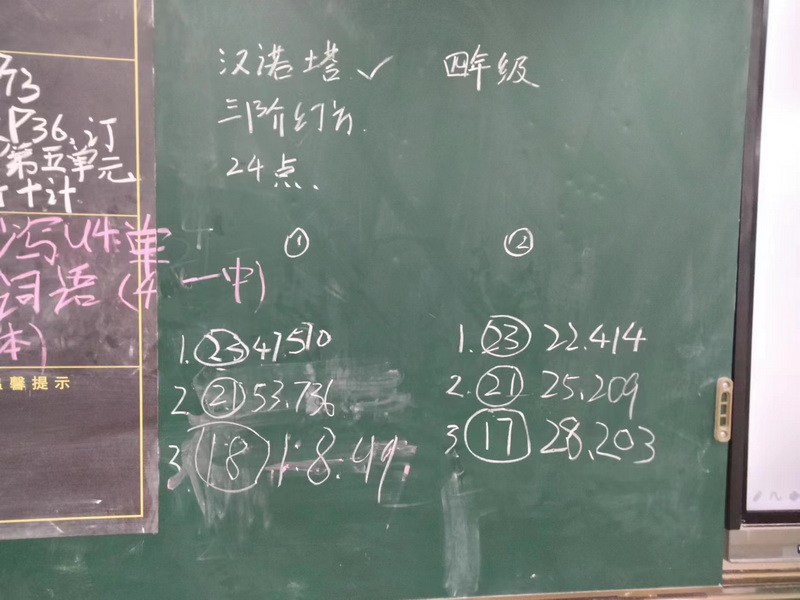 汉诺塔✓ 四年级
三阶幻方.
24点.
P36,订
第五单元
十计
写U4单
词语(4一中)
本)
温馨提示
①
1. 23 47.510
2. 21 53.736
3. 18 1.8.49
②
1. 23 22.414
2. 21 25.209
3. 17 28.203